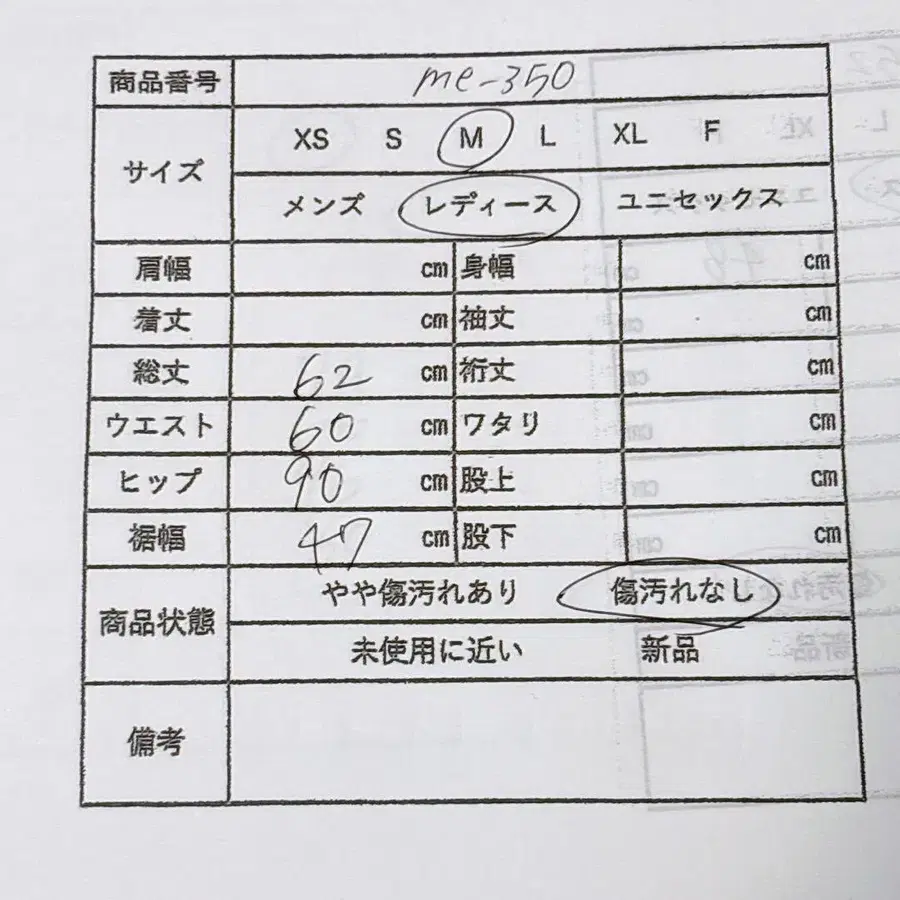 商品番号 me-350
サイズ XS S M L XL F
メンズ レディース ユニセックス
肩幅 cm 身幅 cm
着丈 cm 袖丈 cm
総丈 62 cm 裄丈 cm
ウエスト 60 cm ワタリ cm
ヒップ 90 cm 股上 cm
裾幅 47 cm 股下 cm
商品状態 やや傷汚れあり 傷汚れなし
未使用に近い 新品
備考